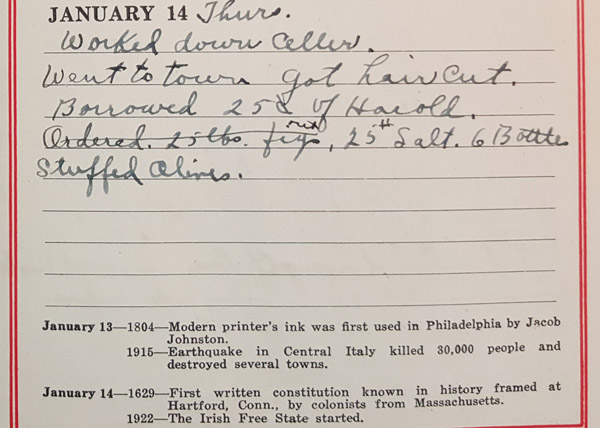 JANUARY 14 Thurs.
Worked down Celler.
Went to town got hair cut.
Borrowed 25¢ of Harold.
Ordered. 25 lbs. figs, 25# Salt. 6 Bottles
Stuffed Olives.
January 13—1804—Modern printer's ink was first used in Philadelphia by Jacob
Johnston.
1915—Earthquake in Central Italy killed 30,000 people and
destroyed several towns.
January 14—1629—First written constitution known in history framed at
Hartford, Conn., by colonists from Massachusetts.
1922—The Irish Free State started.